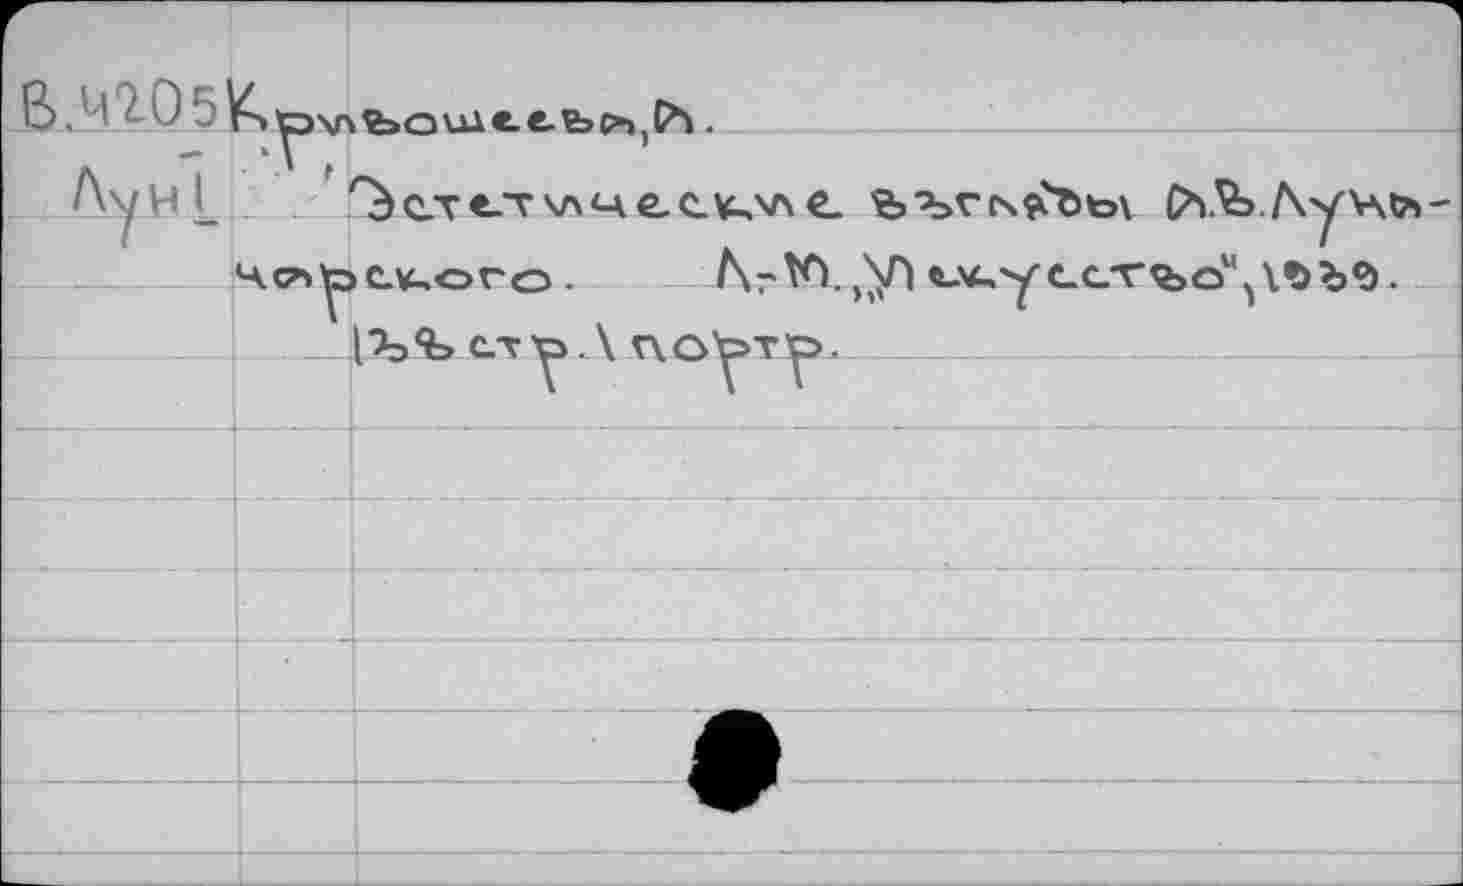 В.4205 Кривошеева, А.
Лун 1 Эстетические взгляды А.В.Луна-
чарского. Л-М., „Искусство", 1939.
133 стр. 1 портр.